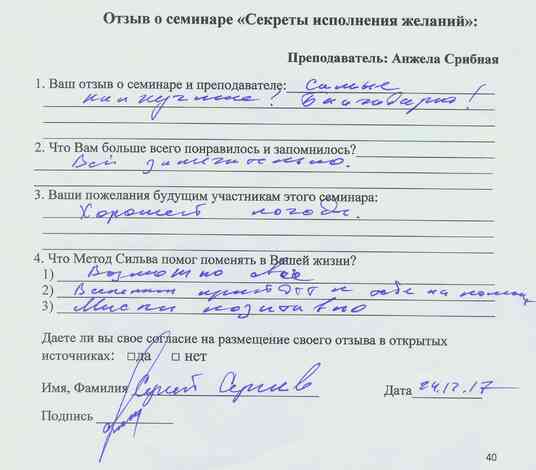 Отзыв о семинаре «Секреты исполнения желаний»:
Преподаватель: Анжела Срибная
1. Ваш отзыв о семинаре и преподавателе: Самые
наилучшие! Благодарю!
2. Что Вам больше всего понравилось и запомнилось?
Всё замечательно.
3. Ваши пожелания будущим участникам этого семинара:
Хорошей погоды.
4. Что Метод Сильва помог поменять в Вашей жизни?
1) Возможно всё
2) придёт к тебе на помощь
3) Мысли позитивно
Даете ли вы свое согласие на размещение своего отзыва в открытых
источниках: □да □ нет
Имя, Фамилия Сергей Дата 24.12.17
Подпись
40